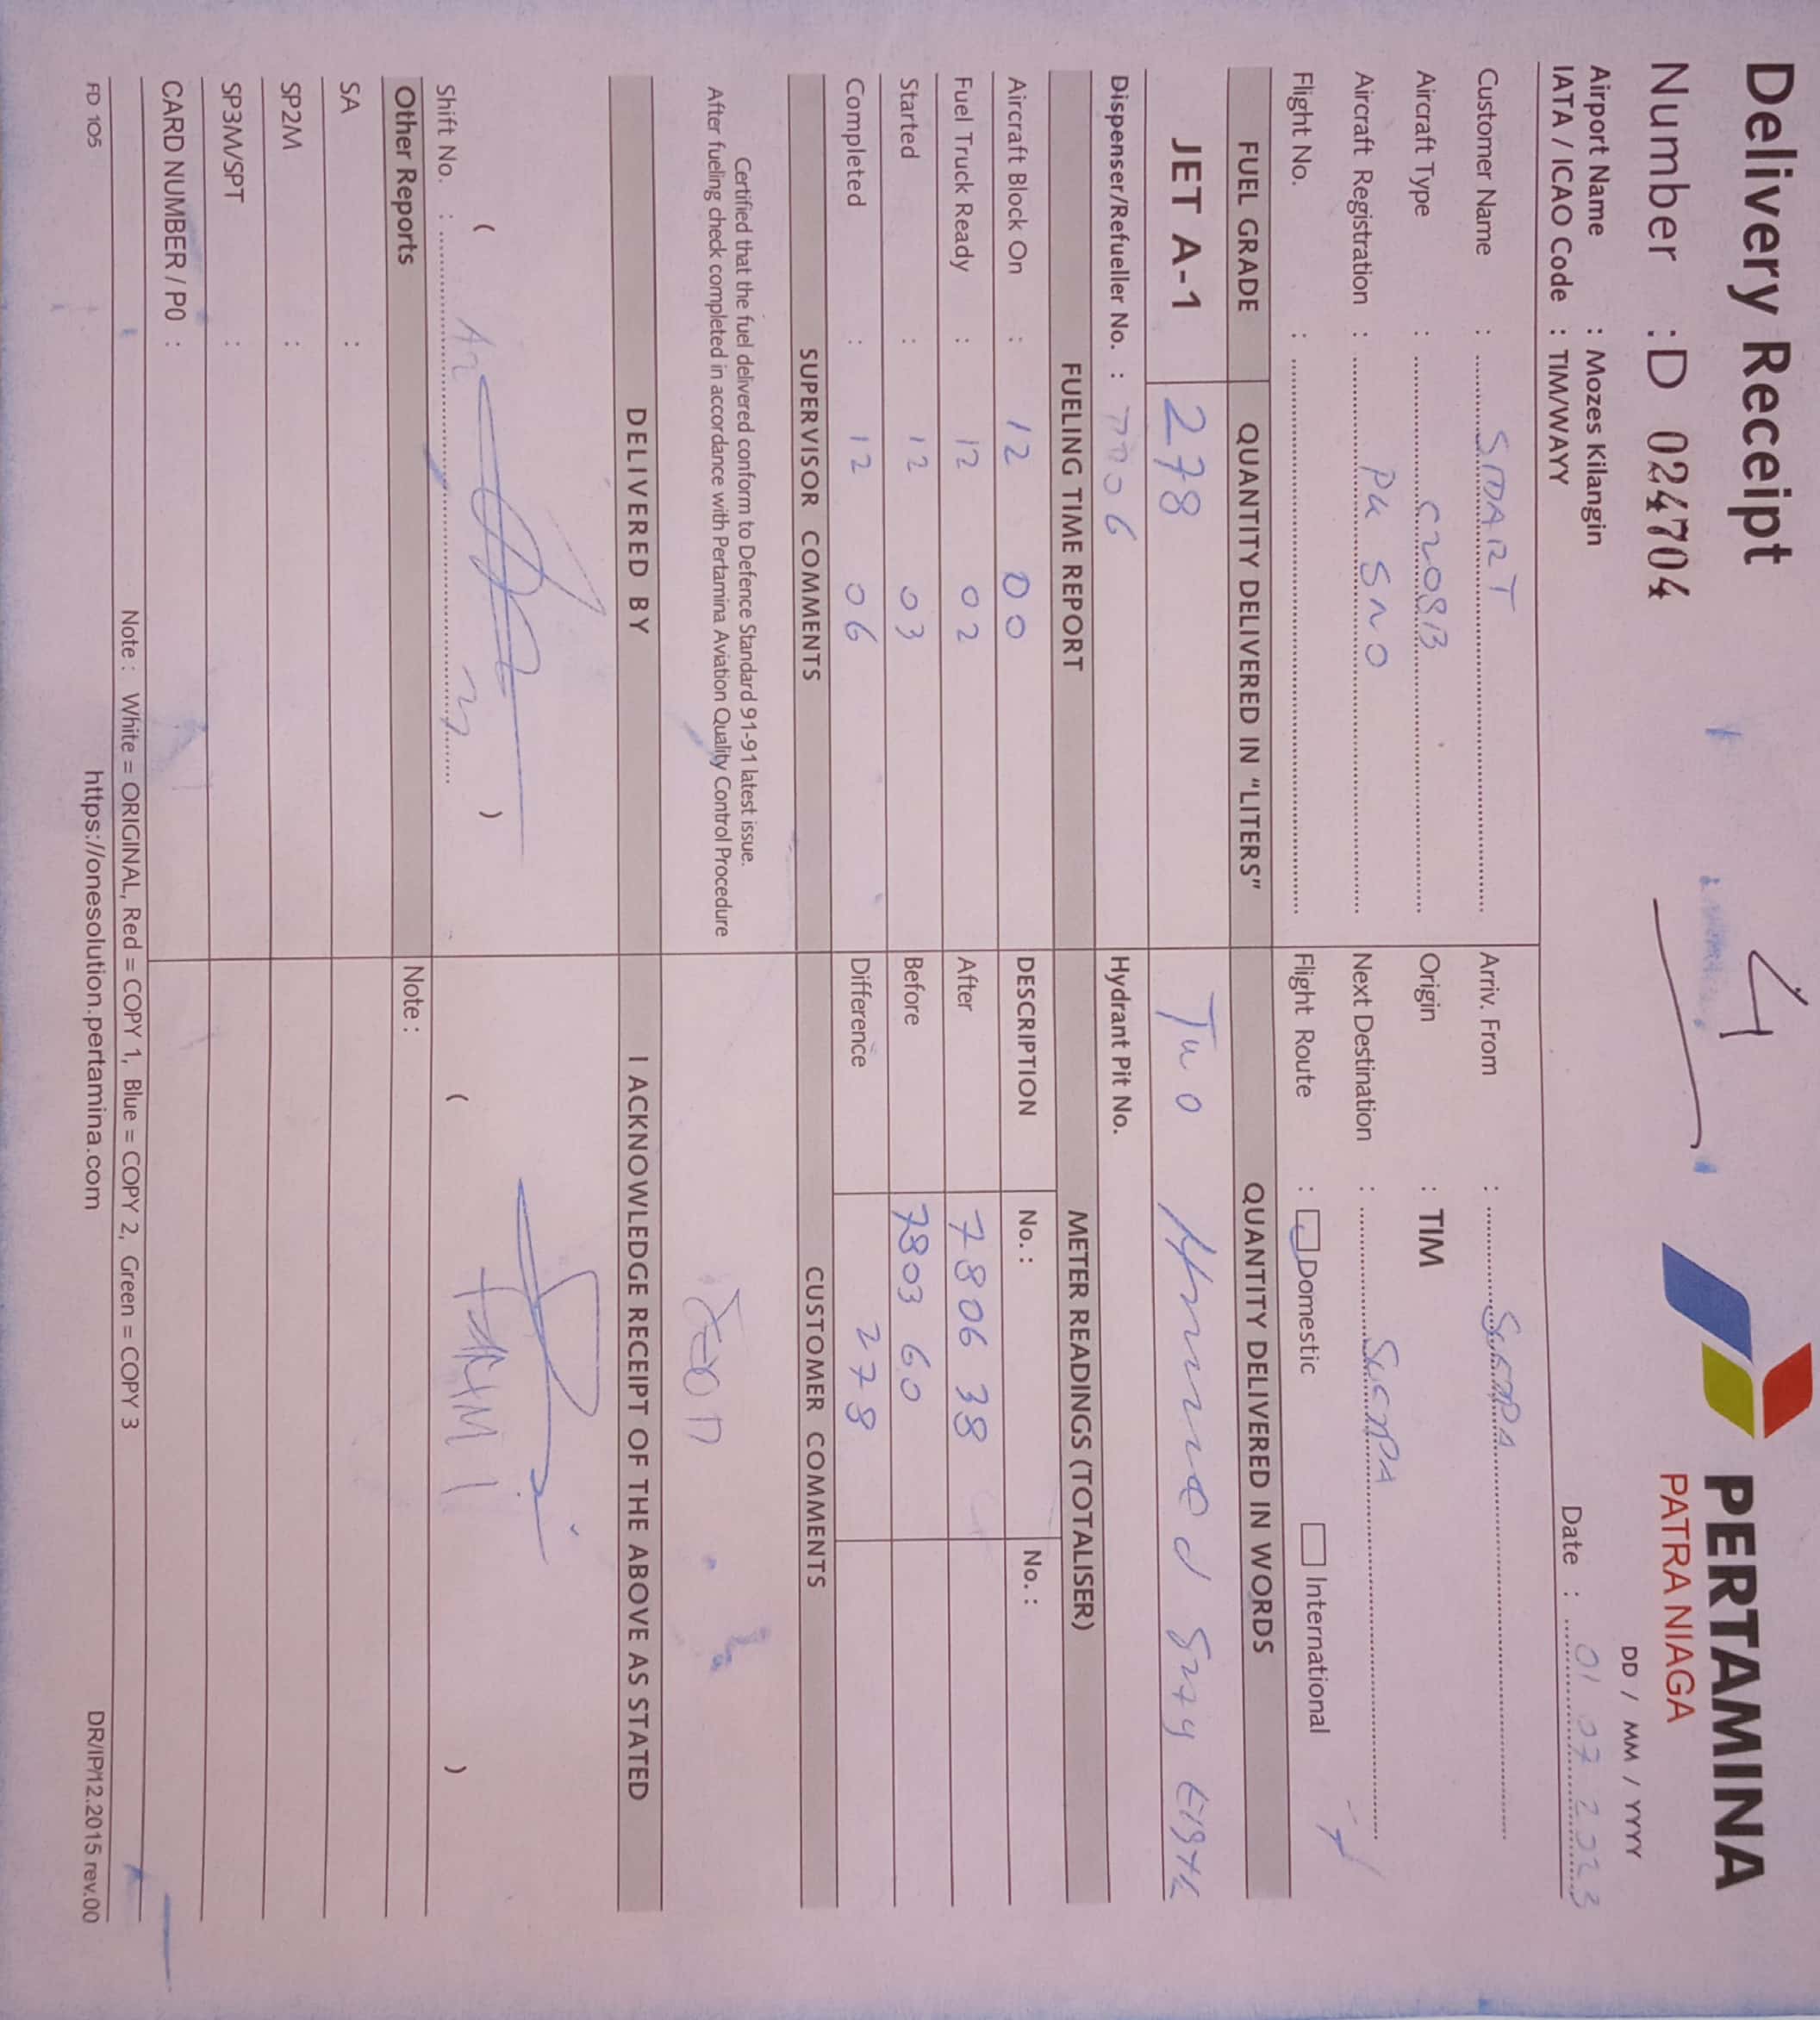 Delivery Receipt
PERTAMINA
PATRA NIAGA
Number : D 024704
DD / MM / YYYY
Airport Name : Mozes Kilangin
IATA / ICAO Code : TIM/WAYY
Date : 01 07 2023
Customer Name : SMART
Arriv. From :
Aircraft Type : C208B
Origin : TIM
Aircraft Registration : PK SNO
Next Destination :
Flight No. :
Flight Route : Domestic International
FUEL GRADE QUANTITY DELIVERED IN "LITERS" QUANTITY DELIVERED IN WORDS
JET A-1 278 Two Hundred Eight
Dispenser/Refueller No. : Hydrant Pit No.
FUELING TIME REPORT METER READINGS (TOTALISER)
Aircraft Block On : 12 00 DESCRIPTION No. : No. :
Fuel Truck Ready : 12 02 After 7806 38
Started : 12 03 Before 7803 60
Completed : 12 06 Difference 278
SUPERVISOR COMMENTS CUSTOMER COMMENTS
Certified that the fuel delivered conform to Defence Standard 91-91 latest issue.
After fueling check completed in accordance with Pertamina Aviation Quality Control Procedure
DELIVERED BY I ACKNOWLEDGE RECEIPT OF THE ABOVE AS STATED
( ) ( )
Shift No. :
Other Reports Note :
SA :
SP2M :
SP3M/SPT :
CARD NUMBER / PO :
Note : White = ORIGINAL, Red = COPY 1, Blue = COPY 2, Green = COPY 3
FD 105 https://onesolution.pertamina.com DR/IP/12.2015 rev.00